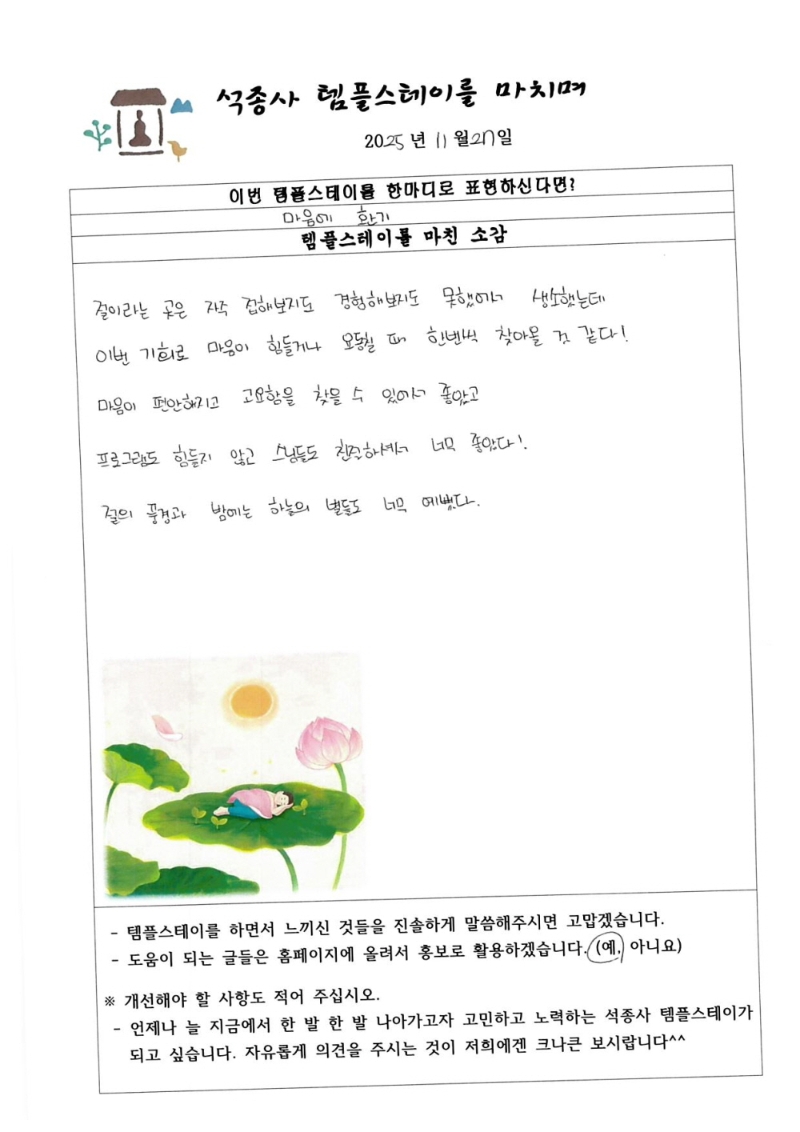 석종사 템플스테이를 마치며
2025년 11월 27일
이번 템플스테이를 한마디로 표현하신다면?
마음에 환기
템플스테이를 마친 소감
절이라는 곳은 자주 접해보지도 경험해보지도 못했어서 생소했는데
이번 기회로 마음이 힘들거나 요동칠 때 한번씩 찾아올 것 같다!
마음이 편안해지고 고요함을 찾을 수 있어서 좋았고
프로그램도 힘들지 않고 스님들도 친절하셔서 너무 좋았다!
절의 풍경과 밤에는 하늘의 별들도 너무 예뻤다.
- 템플스테이를 하면서 느끼신 것들을 진솔하게 말씀해주시면 고맙겠습니다.
- 도움이 되는 글들은 홈페이지에 올려서 홍보로 활용하겠습니다. (예, 아니요)
※ 개선해야 할 사항도 적어 주십시오.
- 언제나 늘 지금에서 한 발 한 발 나아가고자 고민하고 노력하는 석종사 템플스테이가
되고 싶습니다. 자유롭게 의견을 주시는 것이 저희에겐 크나큰 보시랍니다^^